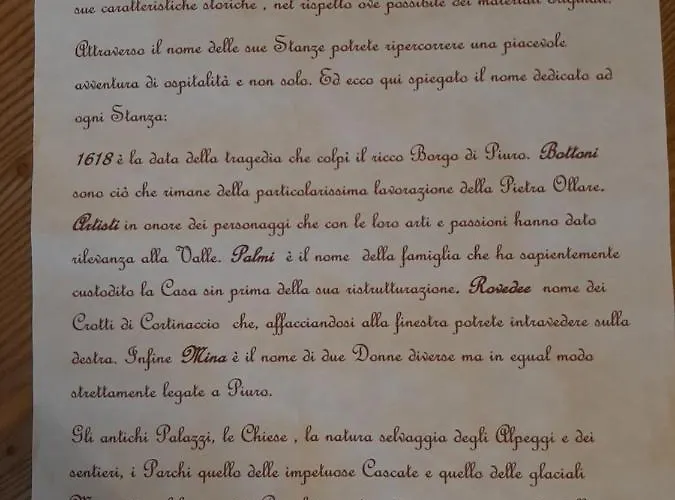 sue caratteristiche storiche , nel rispetto ove possibile dei materiali originali.
Attraverso il nome delle sue Stanze potrete ripercorrere una piacevole
avventura di ospitalità e non solo. Ed ecco qui spiegato il nome dedicato ad
ogni Stanza:
1618 è la data della tragedia che colpì il ricco Borgo di Piuro. Bottoni
sono ciò che rimane della particolarissima lavorazione della Pietra Ollare.
Artisti in onore dei personaggi che con le loro arti e passioni hanno dato
rilevanza alla Valle. Palmi è il nome della famiglia che ha sapientemente
custodito la Casa sin prima della sua ristrutturazione. Rovedee nome dei
Crotti di Cortinaccio che, affacciandosi alla finestra potrete intravedere sulla
destra. Infine Mina è il nome di due Donne diverse ma in egual modo
strettamente legate a Piuro.
Gli antichi Palazzi, le Chiese , la natura selvaggia degli Alpeggi e dei
sentieri, i Parchi quello delle impetuose Cascate e quello delle glaciali